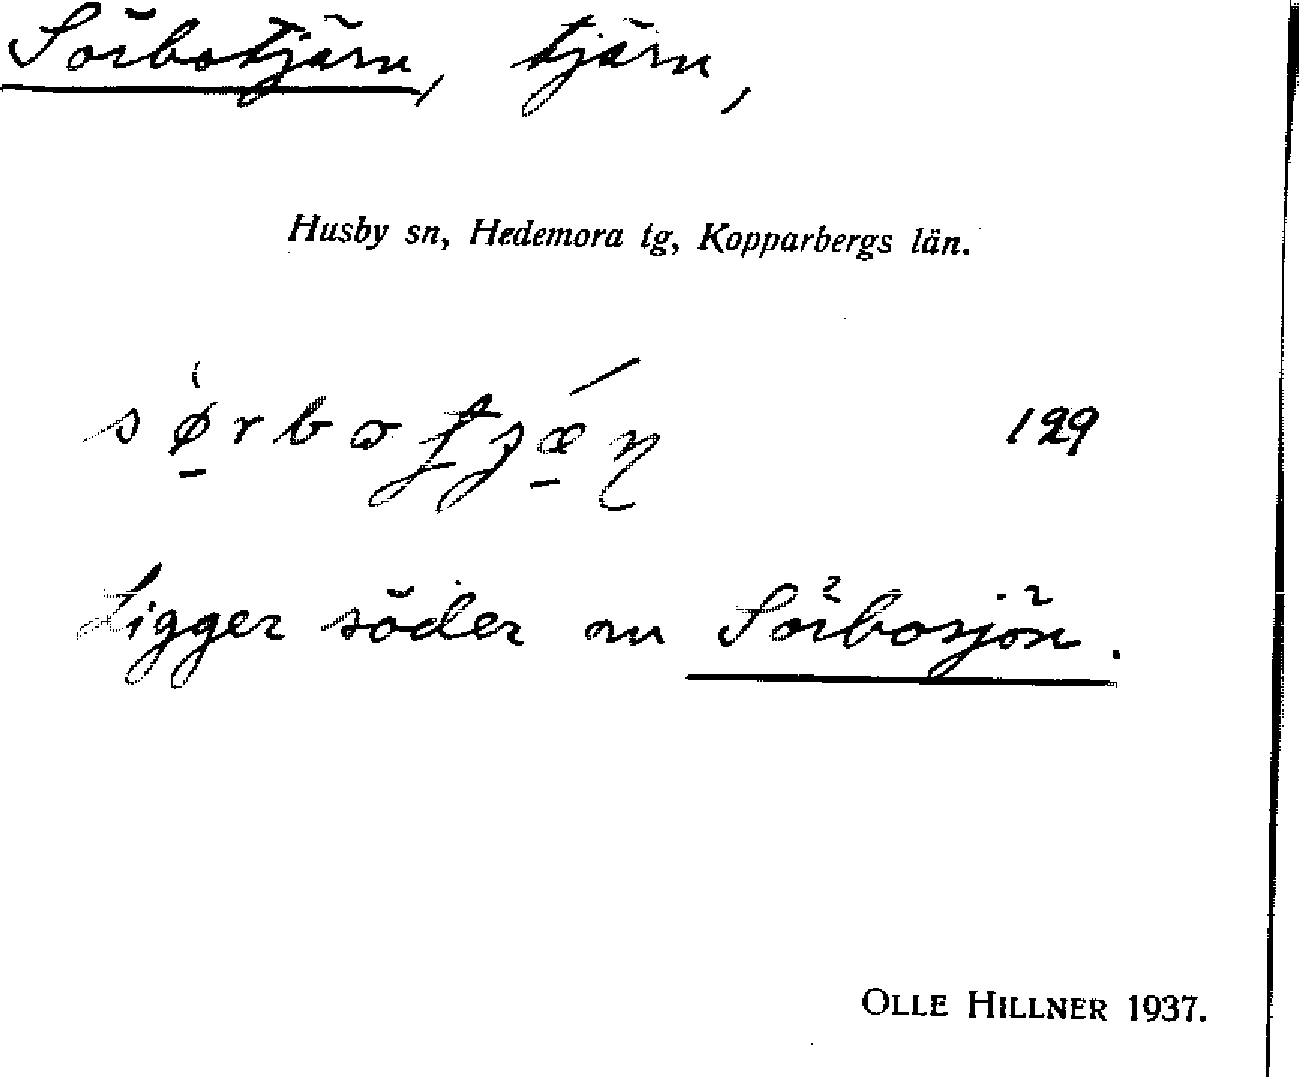 Sörbotjärn, tjärn,
Husby sn, Hedemora tg, Kopparbergs län.
129
Ligger söder om Sörbosjön.
OLLE HILLNER 1937.